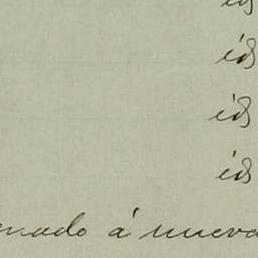 id
id
id
id
nado á nueva